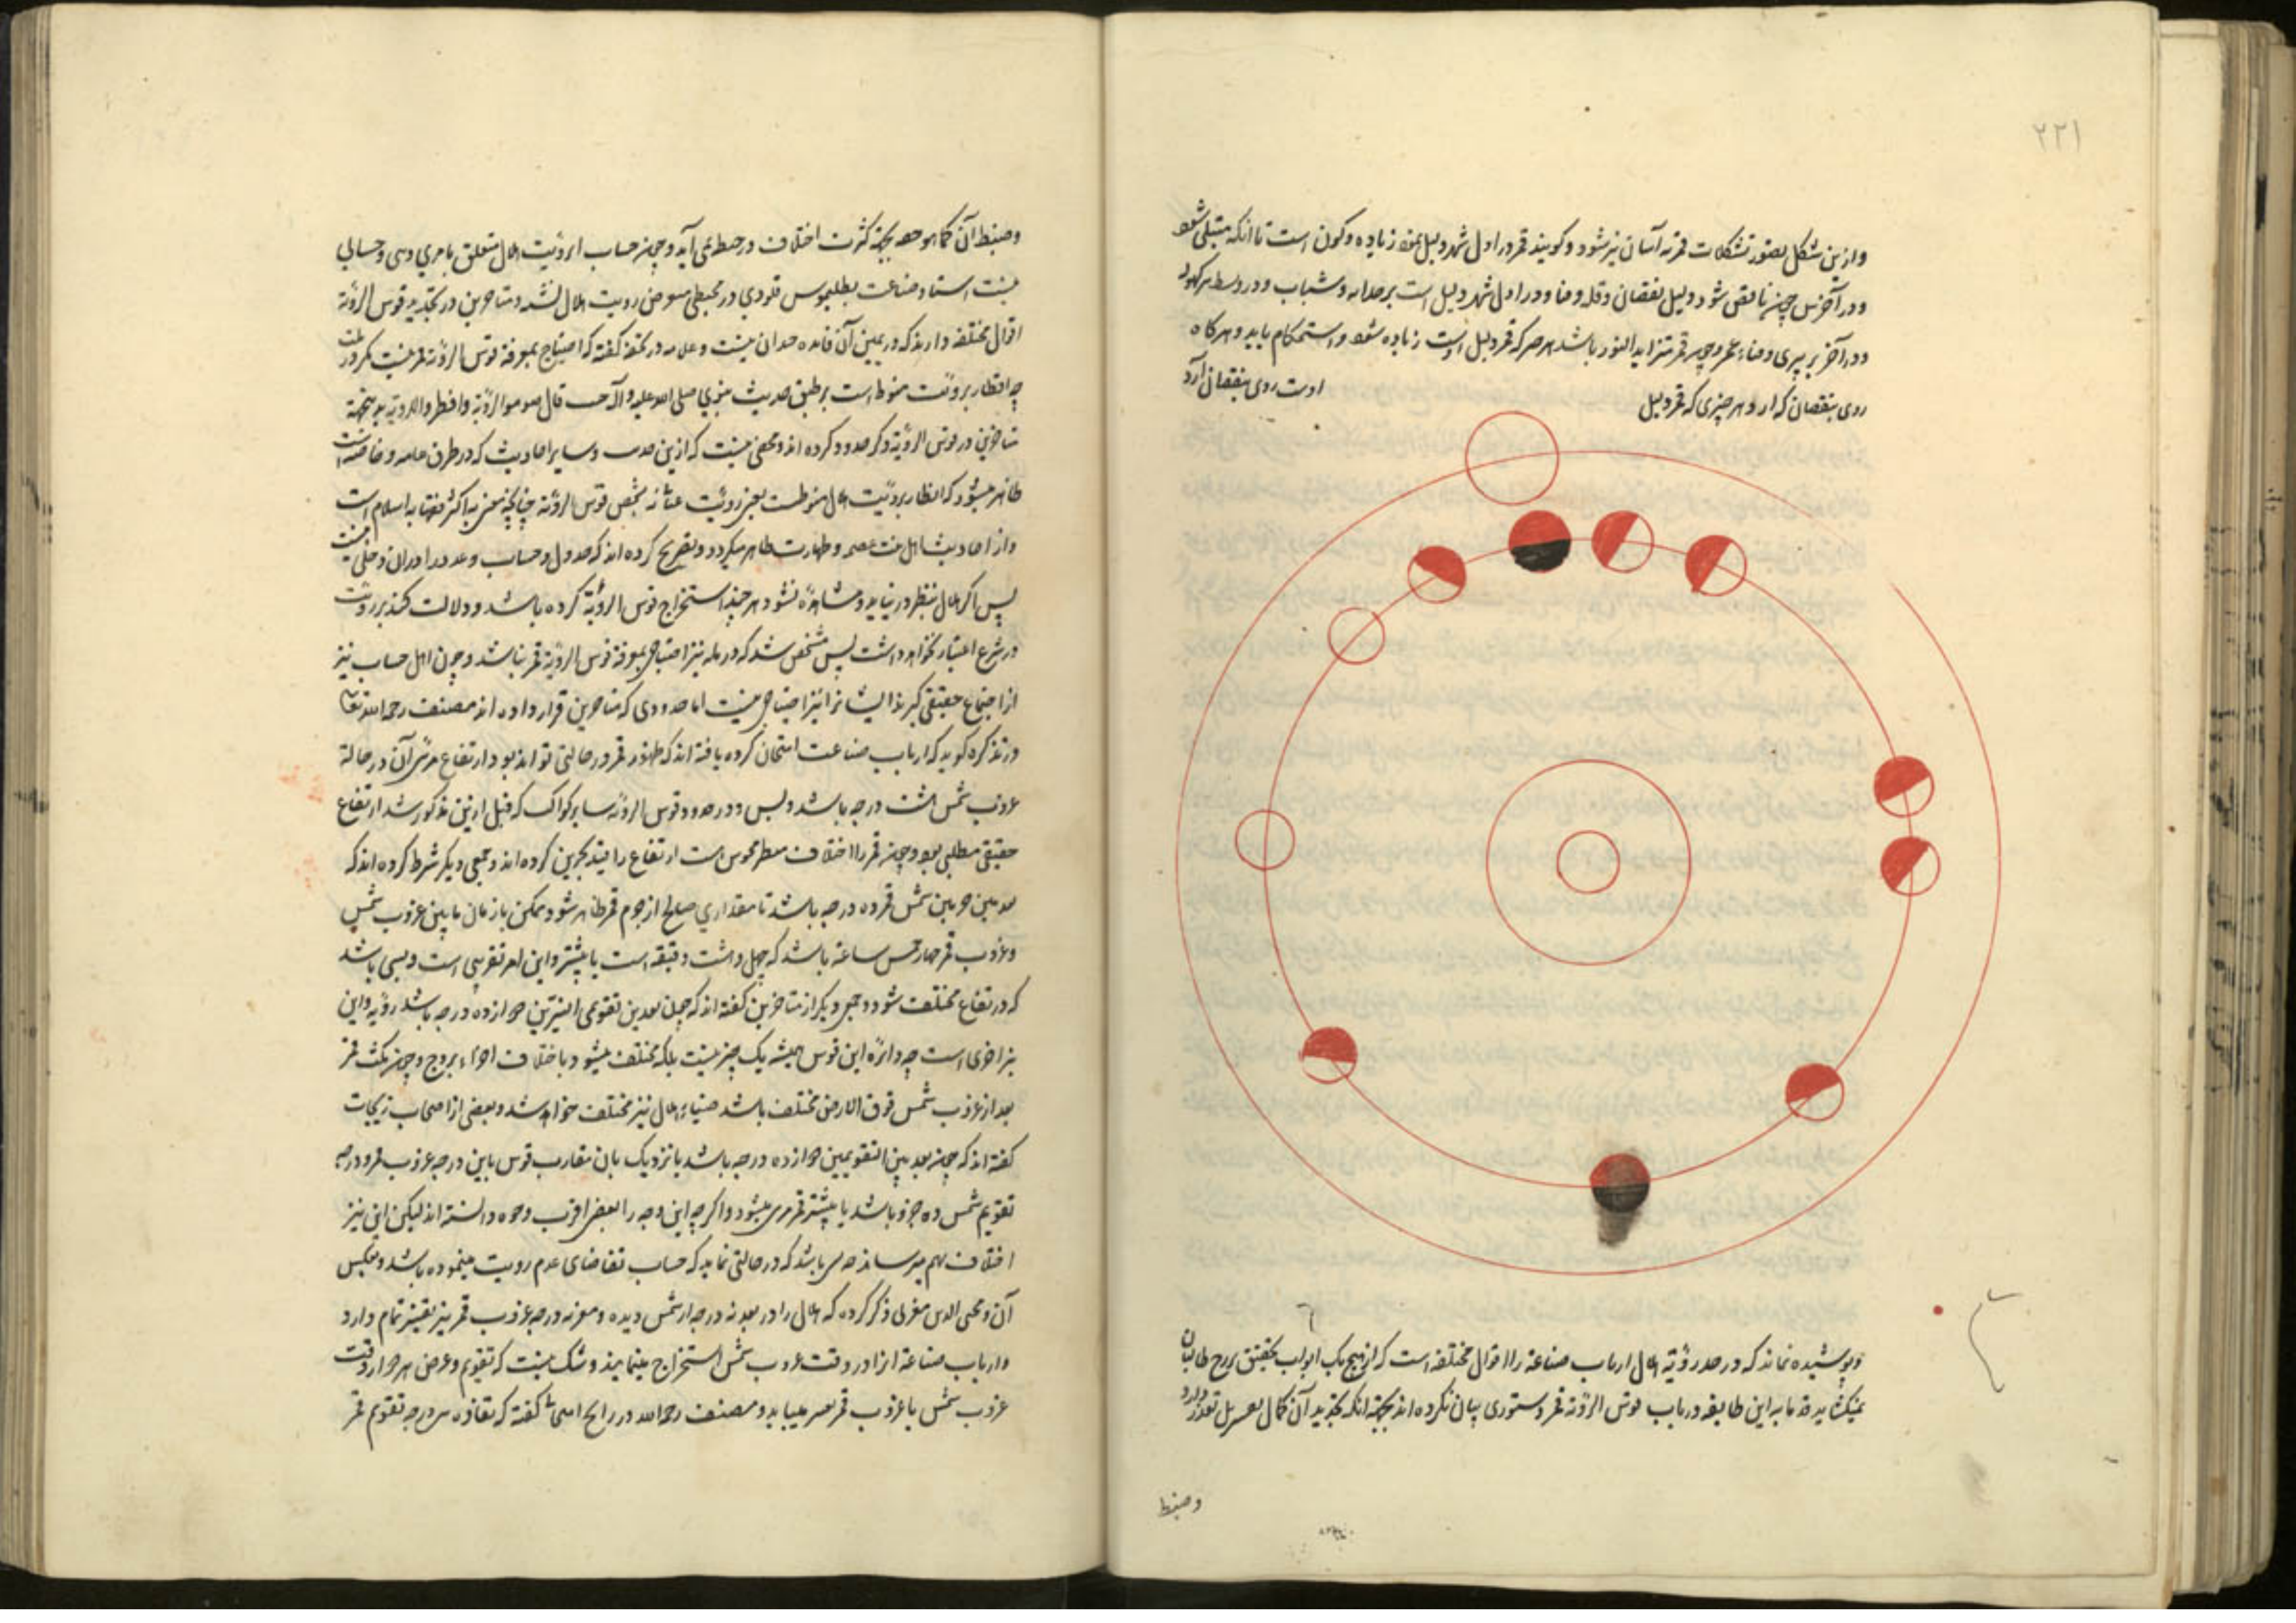 ۲۲۱
و ازین شکل تصور تشکلات قمر آسان نیز شود و کویند قمر در اول شهر دلیل نمو و زیاده و کون است تا آنکه ممتلی شود
و در آخرش چون ناقص شود دلیل نقصان و و فنا و در اول شهر دلیل است بر و شباب و در وسط بر کهولت
و در آخر بر پیری و فناء عمر و چون قمر متزاید النور باشد هر چیز که قمر دلیل اوست زیاده شود و استحکام یابد و هرکاه
روی بنقصان کذارد هر چیزی که قمر دلیل
اوست روی بنقصان آرد
و پوشیده نماند که در حد رؤیة هلال ارباب صناعة را اقوال مختلفه است که از هیچ یک ابواب تحقیق بر رخ طالبان
نمیکشاید قدماء این طایفه در باب قوس الرؤیة قمر دستوری بیان نکرده اند بجهة آنکه تحدید آن کمال تعذر دارد
و ضبط
و ضبط آن کما هو حقه بجهة کثرت اختلاف در حیطه نمی آید و چون حساب رؤیت هلال متعلق بامری و حسابی
نیست استاد صناعت بطلیموس قلوذی در مجسطی معرض رویت هلال نشده و متاخرین در تحدید قوس الرؤیة
اقوال مختلفه دارند که در تعیین آن فایده چندان نیست و علامه در تحفه کفته که احتیاج بمعرفة قوس الرؤیة قمر نیست مکر در ملت
چه افطار برؤیت منوط است بر طبق حدیث نبوی صلی الله علیه و آله حیث قال صوموا لرؤیته و افطروا لرؤیته
متاخرین در قوس الرؤیة ذکر حدود کرده اند و مخفی نیست که ازین حدیث و سایر احادیث که در طرق عامه و خاصه است
ظاهر میشود که افطار برؤیت هلال منوطست بعین رؤیت نه بتشخیص قوس الرؤیة چنانچه اکثر فقهاء اسلام است
و از احادیث اهل بیت عصمت و طهارت ظاهر میکردد و تصریح کرده اند که جدول و حساب و عدد را در آن دخلی نیست
پس اکر هلال بنظر در نیاید و مشاهده نشود هر چند استخراج قوس الرؤیة کرده باشد و دلالت کند بر رؤیت
در شرع اعتبار نخواهد داشت پس مشخص شد که در ملة نیز احتیاج بمعرفة قوس الرؤیة قمر نباشد و چون اهل حساب نیز
از اجتماع حقیقی کیرند ایشانرا نیز احتیاجی نیست اما حدودی که متاخرین قرار داده اند مصنف رحمه الله تعالی
در تذکره کوید که ارباب صناعت امتحان کرده یافته اند که ظهور قمر در حالتی تواند بود و ارتفاع مرئی آن در حالة
غروب شمس هشت درجه باشد و بس و در حدود قوس الرؤیة سایر کواکب که قبل ازین مذکور شد ارتفاع
حقیقی مطلب بود و چون قمر را اختلاف منظر محسوس است ارتفاع را قید کرده اند و جمعی دیکر شرط کرده اند که
بعد بین شمس و قمر ده درجه باشد تا مقداری صالح از جرم قمر ظاهر شود و ممکن باز زمان مابین غروب شمس
و غروب قمر چهار خمس ساعة باشد که چهل و هشت دقیقه است یا بیشتر و این امر تقریبی است و بسی باشد
که در بقاع مختلف شود و جمعی دیکر از متاخرین کفته اند که چون بعد بین تقویمی النیرین دوازده درجه باشد رؤیة و این
نیز است چه دائما این قوس همیشه یک چیز نیست بلکه مختلف میشود باختلاف اجزاء بروج و چون مکث قمر
بعد از غروب شمس فوق الارض مختلف باشد ضیاء هلال نیز مختلف خواهد شد و بعضی از اصحاب زیجات
کفته اند که چون بعد بین التقویمین دوازده درجه باشد یا نزدیک بان مقارب قوس مابین درجه غروب قمر و درجه
تقویم شمس ده جزو باشد یا بیشتر قمر مرئی میشود و اکرچه این وجه را بعضی اقرب وجوه دانسته اند لیکن این نیز
اختلاف بهم میرساند چه باشد که در حالتی نماید که حساب تقاضای عدم رویت مینموده باشد و بعکس
آن و محیی الدین مغربی ذکر کرده که هلال را در بعد نه درجه از شمس دیده و درجه غروب قمر نیز تمام دارد
و ارباب صناعة آنرا در وقت غروب شمس استخراج مینمایند و شک نیست که تقویم و عرض هر دو از وقت
غروب شمس تا غروب قمر تغییر مییابد و مصنف رحمه الله در کفته که تفاوت درجه تقویم قمر